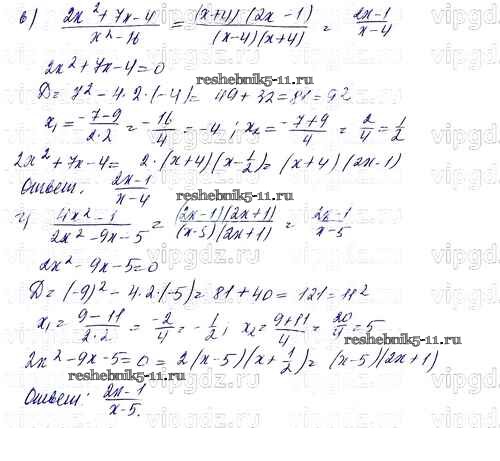 в) (2x²+7x-4)/(x²-16) = ((x+4)(2x-1))/((x-4)(x+4)) = (2x-1)/(x-4)
2x²+7x-4=0
reshebnik5-11.ru
D=7²-4·2·(-4)=49+32=81=9²
x₁=(-7-9)/(2·2)=-16/4=-4; x₂=(-7+9)/4=2/4=1/2
2x²+7x-4=2·(x+4)(x-1/2)=(x+4)(2x-1)
Ответ: (2x-1)/(x-4)
reshebnik5-11.ru
г) (4x²-1)/(2x²-9x-5)=((2x-1)(2x+1))/((x-5)(2x+1))=(2x-1)/(x-5)
2x²-9x-5=0
D=(-9)²-4·2·(-5)=81+40=121=11²
x₁=(9-11)/(2·2)=-2/4=-1/2; x₂=(9+11)/4=20/4=5
2x²-9x-5=0=2(x-5)(x+1/2)=(x-5)(2x+1)
reshebnik5-11.ru
Ответ: (2x-1)/(x-5).
vipgdz.ru